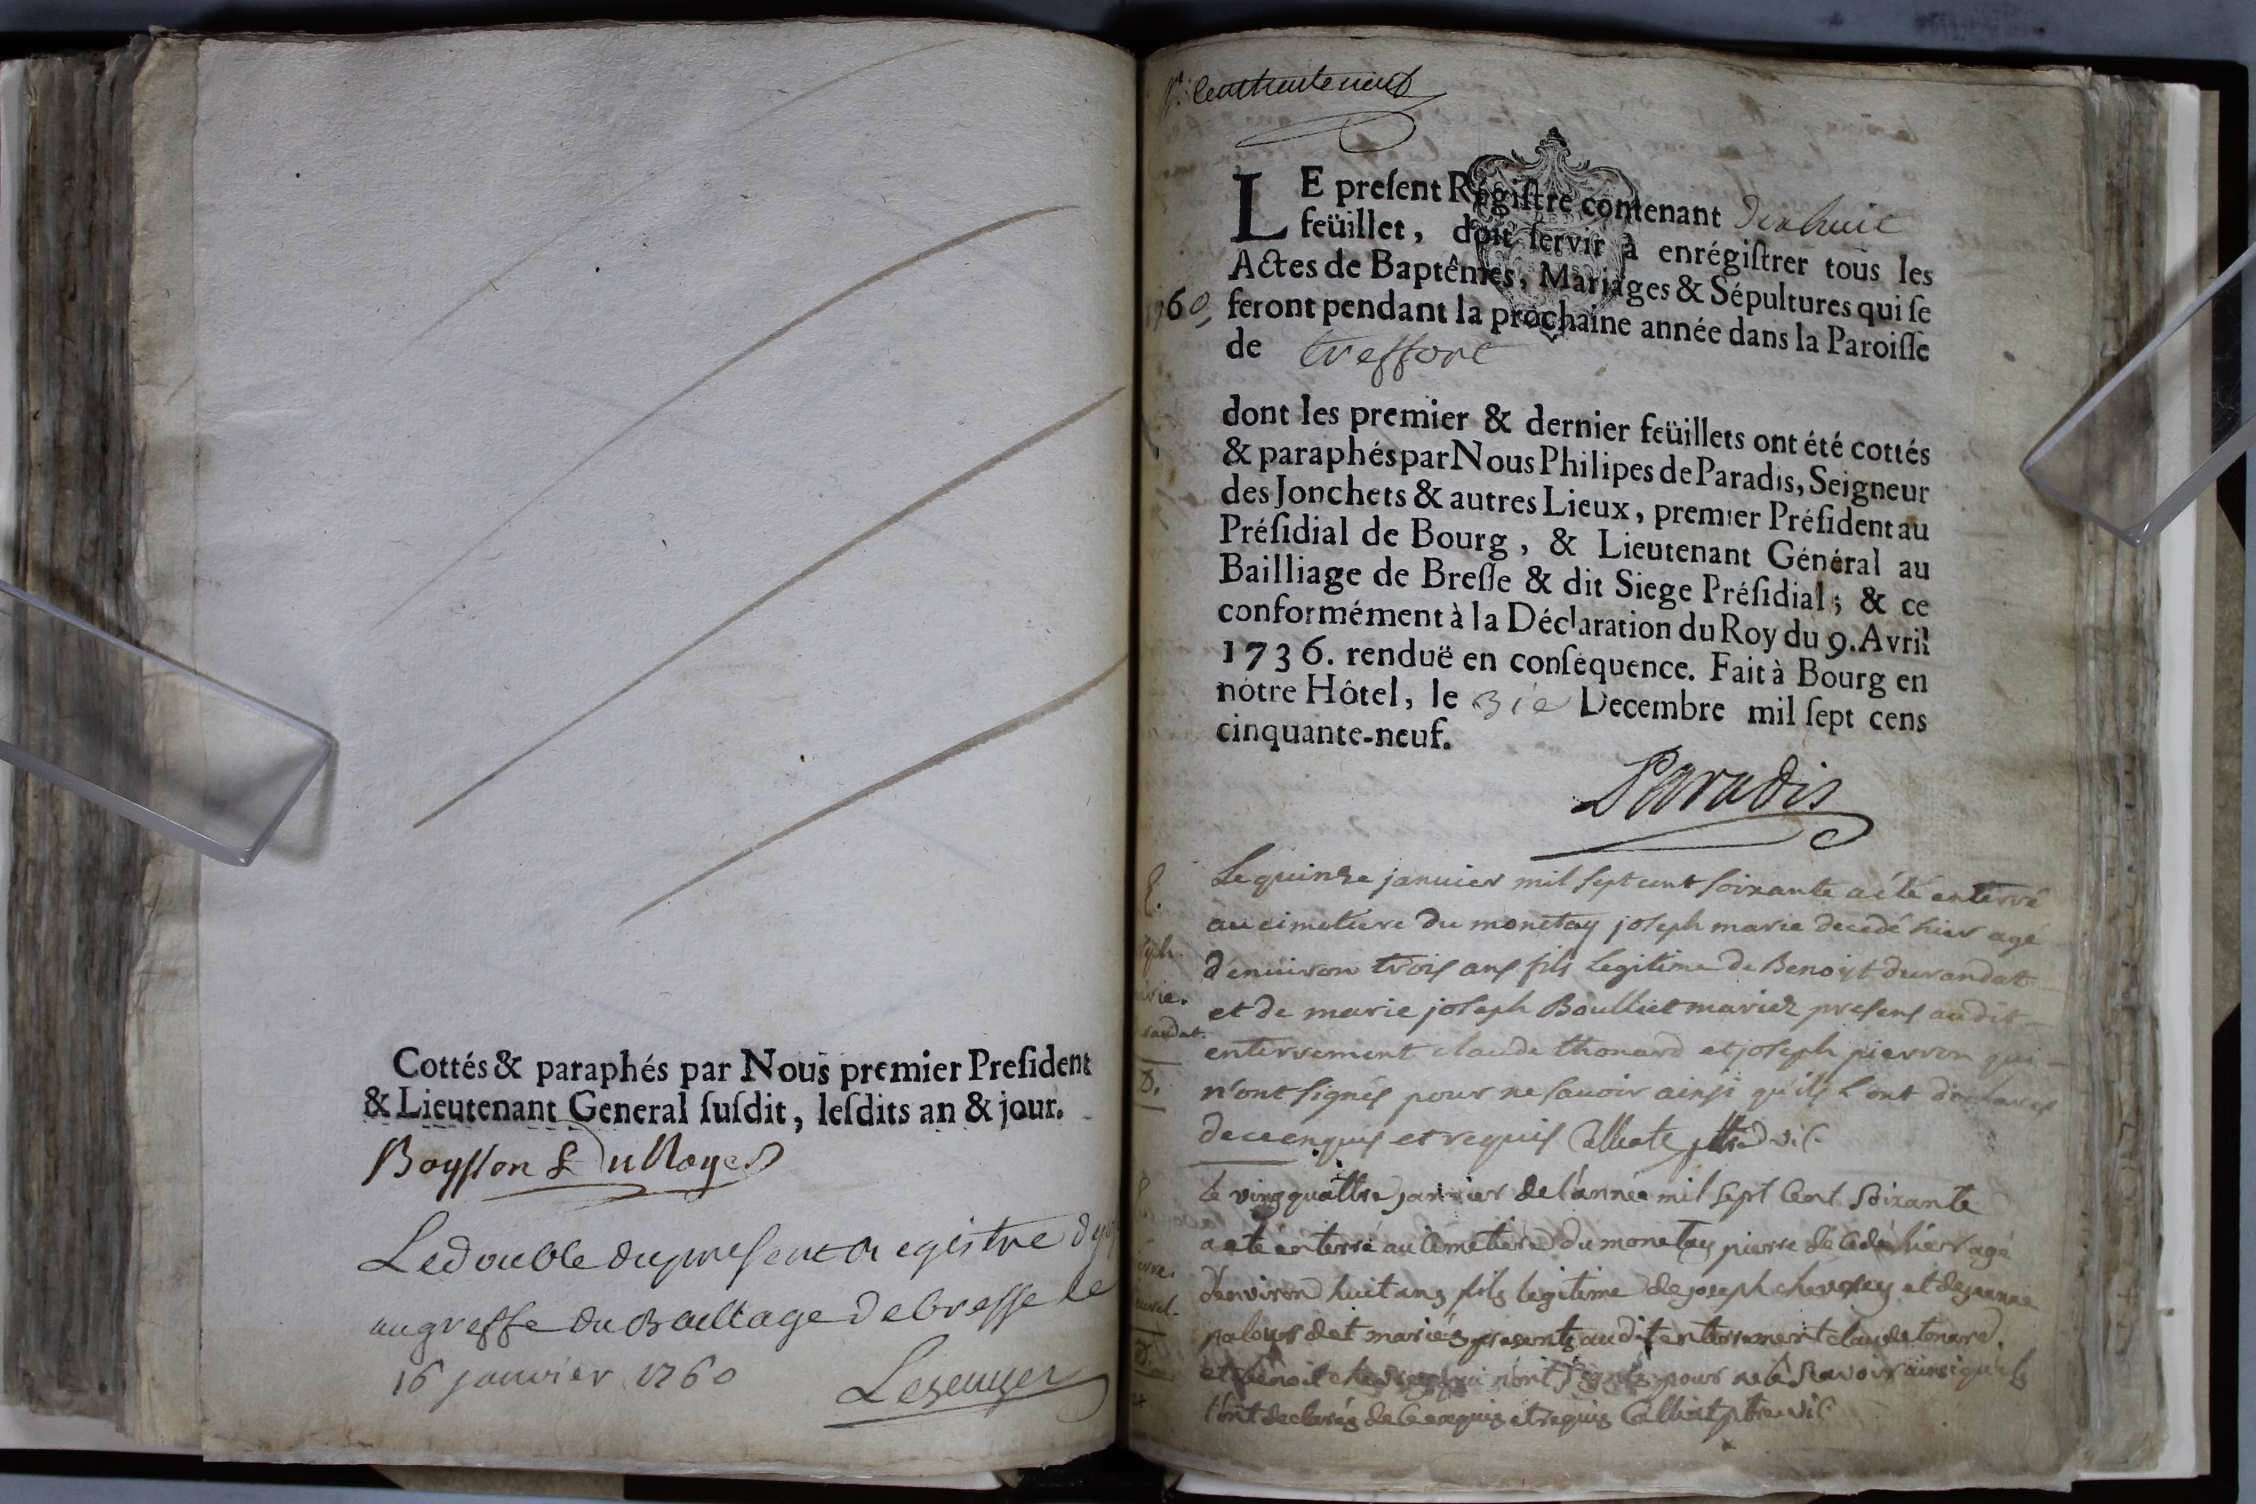 Cottés & paraphés par Nous premier Preſident
& Lieutenant General ſuſdit, leſdits an & jour.
Le double du preſent Regiſtre
au greffe du Bailliage de breſſe le
16 janvier 1760
cent trente neuf
LE preſent Regiſtre contenant dix huit
feüillet, doit ſervir à enrégiſtrer tous les
Actes de Baptêmes, Mariages & Sépultures qui ſe
1760 feront pendant la prochaine année dans la Paroiſſe
de treffort
dont les premier & dernier feüillets ont été cottés
& paraphés par Nous Philipes de Paradis, Seigneur
des Jonchets & autres Lieux, premier Préſident au
Préſidial de Bourg, & Lieutenant Général au
Bailliage de Breſſe & dit Siege Préſidial; & ce
conformément à la Déclaration du Roy du 9. Avril
1736. renduë en conſéquence. Fait à Bourg en
nótre Hôtel, le Decembre mil ſept cens
cinquante-neuf.
Paradis
Le quinze janvier mil sept cent soixante a été enterré
au cimetiere du monetay joseph marie decedé hier agé
d'enuiron trois ans fils legitime de Benoist durandat
et de marie joseph Boulliet mariez presens audit
enterrement claude thonard et joseph pierron qui
n'ont signés pour ne sauoir ainsi qu'ils l'ont declarés
de ce enquis et requis Calliat ptre vic
le vingt quattre janvier de l'année mil sept Cent soixante
a eté enterré au Cimetiere du monetay pierre décedé hier agé
d'environ huit ans fils legitime de joseph chevrey et de jeanne
mariés presents audit enterrement claude tonard
et benoit qui n'ont signés pour ne le sçavoir ainsi qu'ils
l'ont declarés de Ce enquis et requis Calliat ptre vic